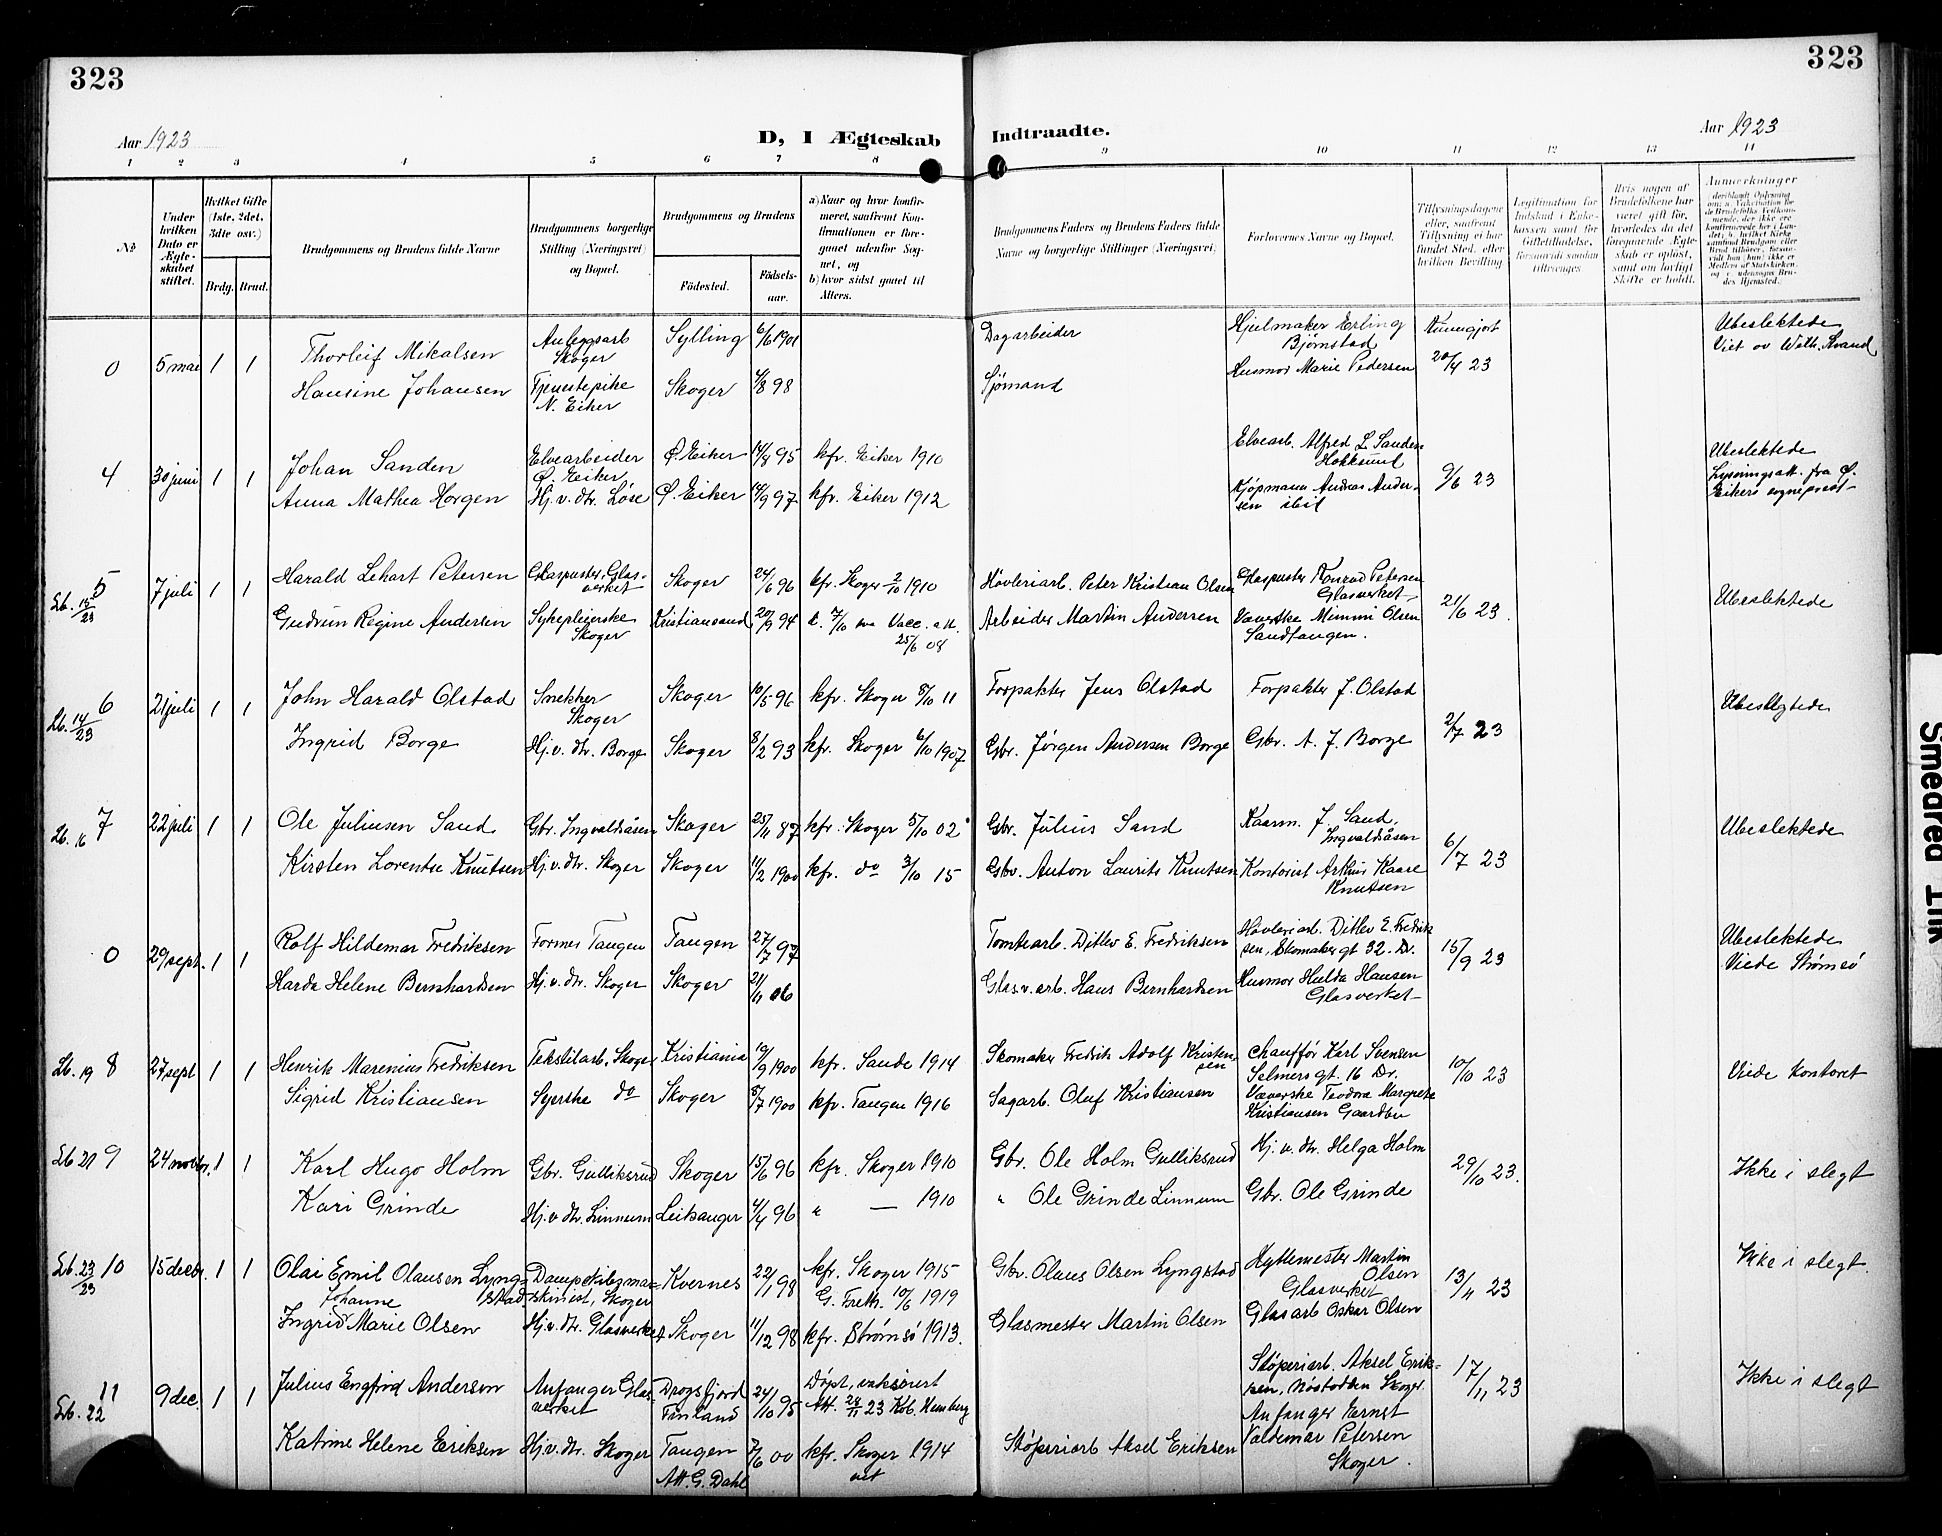 323
323
Aar 1923
D, I Ægteskab
Indtraadte.
Aar 1923
1 2 3 4 5 6 7 8 9 10 11 12 13 14
No
Under hvilken Dato er Ægteskabet stiftet.
Hvilket Gifte (1ste, 2det, 3die osv.)
Brdg. Brud.
Brudgommens og Brudens fulde Navne
Brudgommens borgerlige Stilling (Næringsvei) og Bopæl.
Brudgommens og Brudens
Fødested.
Fødselsaar.
a) Naar og hvor konfirmeret, saafremt Konfirmationen er foregaaet udenfor Sognet, og
b) hvor sidst gaaet til Alters.
Brudgommens Faders og Brudens Faders fulde Navne og borgerlige Stillinger (Næringsvei)
Forlovernes Navne og Bopæl.
Tillysningsdagene eller, saafremt Tillysning ei har fundet Sted, efter hvilken Bevilling
Legitimation for Indskud i Enkekassen samt for Giftetilladelse, forsaavidt saadan tiltrænges.
Hvis nogen af Brudefolkene har været gift før, hvorledes da det foregaaende Ægteskab er opløst, samt om lovligt Skifte er holdt.
Anmerkninger
0 5 mai 1 1 Thorleif Mikalsen Anleggsarb Skoger Sylling 6/6 1901 Dagarbeider Hjulmaker Erling Bjørnstad Kunngjort 20/4 23 Ubeslektede Viet av Wilh. Strand
Hansine Johansen Tjenestepike N. Eiker Skoger 4/8 98 Sjømand Husmor Marie Pedersen
4 30 juni 1 1 Johan Sanden Elvearbeider Ø. Eiker Ø. Eiker 14/8 95 kfr. Eiker 1910 Elvearb. Alfred L. Sanden Hokksund 9/6 23 Ubeslektede Lysningsatt. fra Ø. Eikers sogneprest
Anna Mathea Horgen Hj. v. dtr. Løse Ø. Eiker 14/9 97 kfr. Eiker 1912 Kjøpmann Andreas Andersen ibid
Lb. 15/23 5 7 juli 1 1 Harald Lehart Petersen Glaspuster, Glasverket Skoger 24/6 96 kfr. Skoger 2/10 1910 Høvleriarb. Peter Kristian Olsen Glaspuster Konrad Petersen Glasverket 21/6 23 Ubeslektede
Gudrun Regine Andersen Sykepleierske Skoger Kristiansand 20/9 94 k. 7/10 Vacc. att. 25/6 08 Arbeider Martin Andersen Væverske Mimmi Olsen Sandtangen.
Lb. 14/23 6 21 juli 1 1 John Harald Olstad Snekker Skoger Skoger 10/5 96 kfr. Skoger 8/10 11 Forpakter Jens Olstad Forpakter J. Olstad 2/7 23 Ubeslegtede
Ingrid Borge Hj. v. dtr. Borge Skoger 8/2 93 kfr. Skoger 6/10 1907 Gbr. Jørgen Andersen Borge Gbr. A. J. Borge
Lb. 16 7 22 juli 1 1 Ole Juliusen Sand Gbr. Ingvaldsåsen Skoger 25/11 87 kfr. Skoger 5/10 02 Gbr. Julius Sand Kaarm. J. Sand, Ingvaldsåsen 6/7 23 Ubeslektede
Kirsten Lorentse Knutsen Hj. v. dtr. Skoger Skoger 11/2 1900 kfr. do 3/10 15 Gbr. Anton Laurits Knutsen Kontorist Arthur Kaare Knutsen
0 29 sept. 1 1 Rolf Hildemar Fredriksen Former Tangen Tangen 27/7 97 Tomtearb. Ditlev E. Fredriksen Høvleriarb. Ditlev E. Fredriksen, Skomakergt 32. Dr. 15/9 23 Ubeslektede Viede Strømsø
Harda Helene Bernhardsen Hj. v. dtr. Skoger Skoger 21/11 06 Glasv. arb. Hans Bernhardsen Husmor Hulda Hansen Glasverket
Lb. 19 8 27 sept 1 1 Henrik Marenius Fredriksen Tekstilarb. Skoger Kristiania 19/9 1900 kfr. Sande 1914 Skomaker Fredrik Adolf Kristensen Chauffør Karl Svensen Selmersgt. 16 Dr. 10/10 23 Viede kontoret
Sigrid Kristiansen Syerske do Skoger 8/7 1900 kfr. Tangen 1916 Sagarb. Oluf Kristiansen Væverske Teodora Margrethe Kristiansen Gaardbu
Lb 21 9 24 novbr. 1 1 Karl Hugo Holm Gbr. Gulliksrud Skoger 15/6 96 kfr. Skoger 1910 Gbr. Ole Holm Gulliksrud Hj. v. dtr. Helga Holm 29/10 23. Ikke i slegt
Kari Grinde Hj. v. dtr. Linnum Leikanger 4/4 96 " — 1910 " Ole Grinde Linnum Gbr. Ole Grinde
Lb. 23/23 10 15 decbr. 1 1 Olai Emil Olausen Lyngstad Dampskibsmaskinist, Skoger Kvernes 22/1 98 kfr. Skoger 1915 G. Freth. 10/6 1919 Gbr. Olaus Olsen Lyngstad Hyttemester Martin Olsen Glasverket 13/11 23 Ikke i slegt.
Ingrid Johanne Marie Olsen Hj. v. dtr. Glasverket Skoger 11/12 98 kfr. Strømsø 1913. Glasmester Martin Olsen Glasarb Oskar Olsen
Lb. 22 11 9 dec. 1 1 Julius Engfrid Anderson Anfanger Glasverket Dragsfjord Finland 24/10 95 Døpt, vaksinert Att. 24/11 23 Støperiarb. Aksel Eriksen, Nøstodden Skoger. 17/11 23 Ikke i slegt
Katrine Helene Eriksen Hj. v. dtr. Skoger Tangen Att. G. Dahl 7/6 00 kfr. Skoger 1914 Støperiarb Aksel Eriksen Anfanger Ernst Valdemar Petersen Skoger.
Smeared Ink